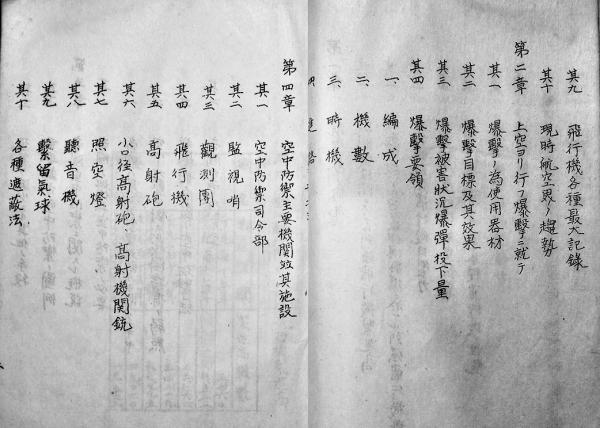 其九 飛行機各種最大記録
其十 現時航空界ノ趨勢
第二章 上空ヨリ行フ爆撃ニ就テ
其一 爆撃ノ為使用器材
其二 爆撃目標及其效果
其三 爆撃被害状況爆弾投下量
其四 爆撃要領
一、編成
二、機數
三、時機
第四章 空中防禦主要機関並其施設
其一 空中防禦司令部
其二 監視哨
其三 觀測團
其四 飛行機
其五 高射砲
其六 小口径高射砲、高射機関銃
其七 照空燈
其八 聽音機
其九 繋留氣球
其十 各種遮蔽法